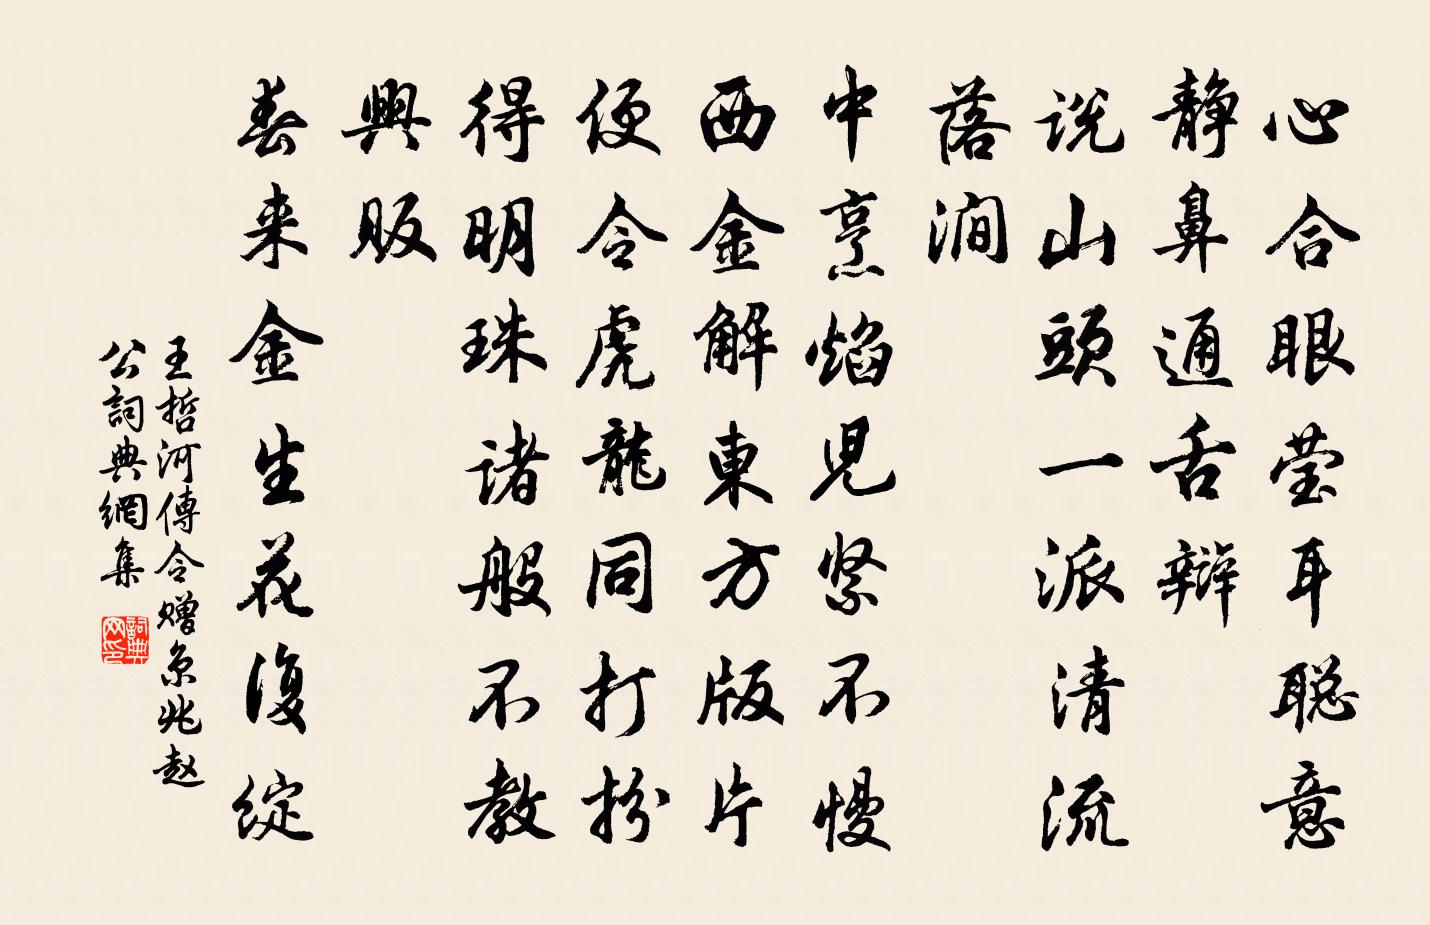 心合眼莹耳聪意
静鼻通舌辩
说山頭一派清流
落澗
中烹焰兒紧不慢
西金解東方版片
便令虎龍同打扮
得明珠诸般不教
興贩
春来金生花復綻
王哲河傳令赠京兆赵
公詞典網集
詞典网印